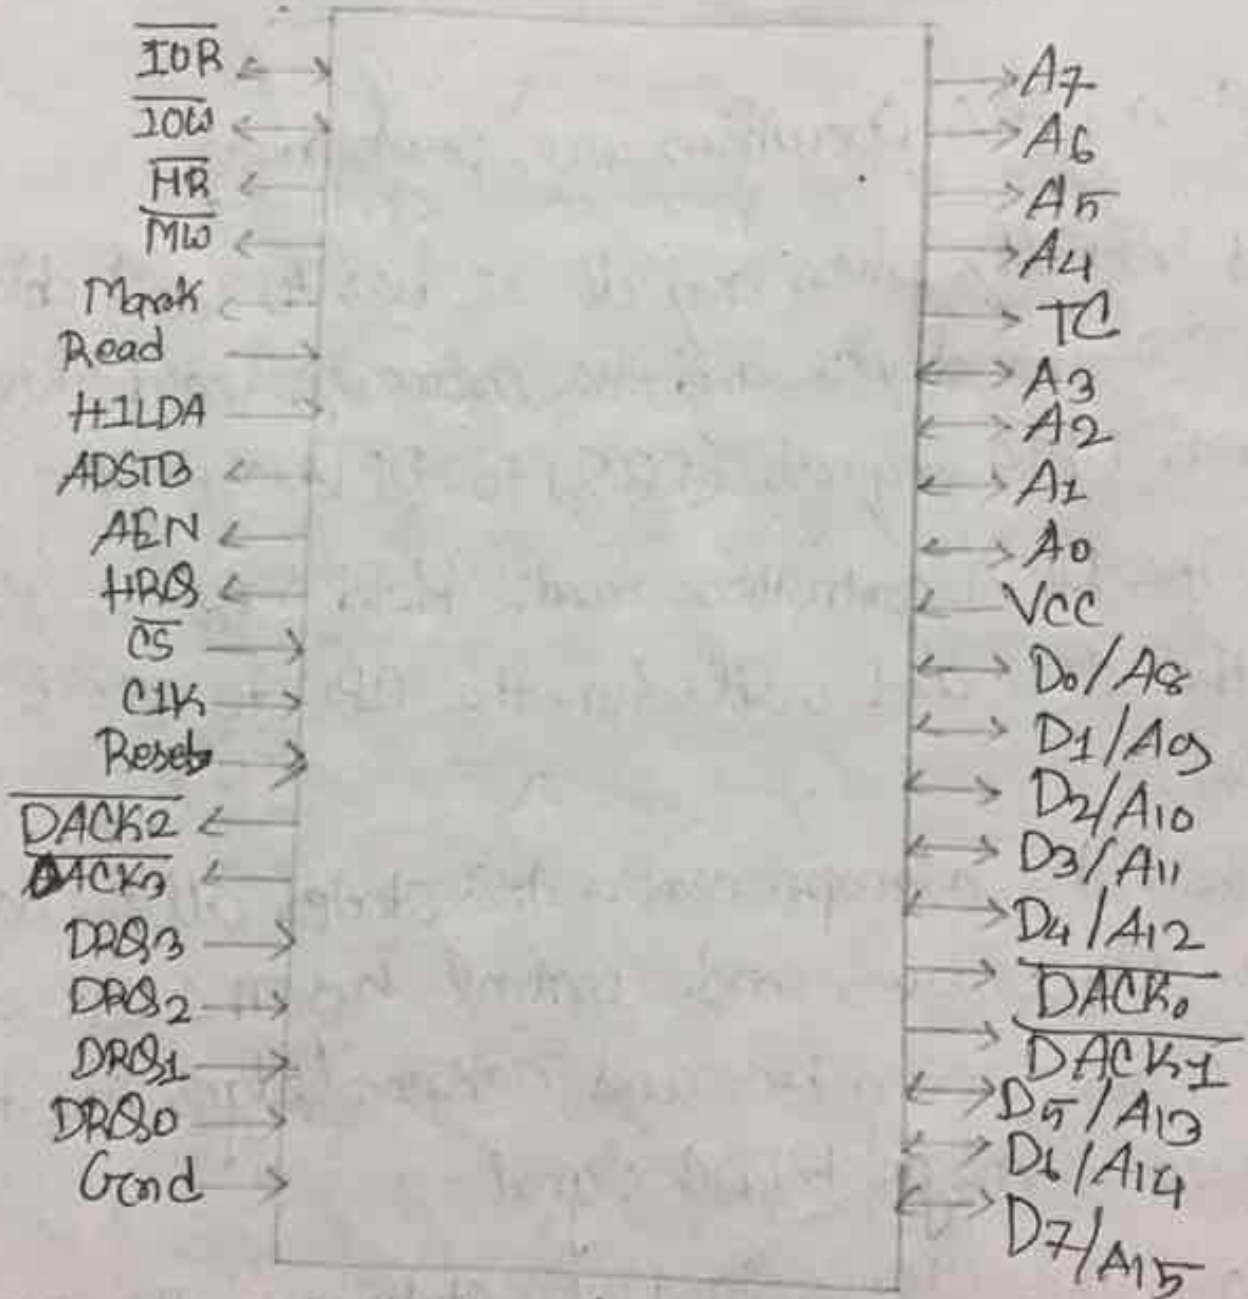 IOR
IOW
MR
MW
Mark
Read
HILDA
ADSTB
AEN
HRQ
CS
CLK
Reset
DACK2
DACK3
DRQ3
DRQ2
DRQ1
DRQ0
Gnd
A7
A6
A5
A4
TC
A3
A2
A1
A0
VCC
D0/A8
D1/A09
D2/A10
D3/A11
D4/A12
DACK0
DACK1
D5/A13
D6/A14
D7/A15